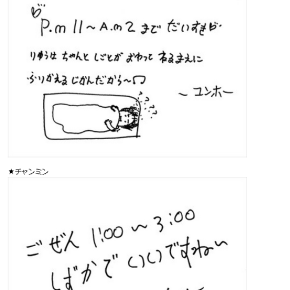 P.m 11～A.m 2 まで だいすきﾋﾞ
りゆうは ちゃんと しごとが おわって ねるまえに
ふりかえる じかんだから～
～ ユンホー
★チャンミン
ごぜん 1:00 ～ 3:00
しずかで いいですねい